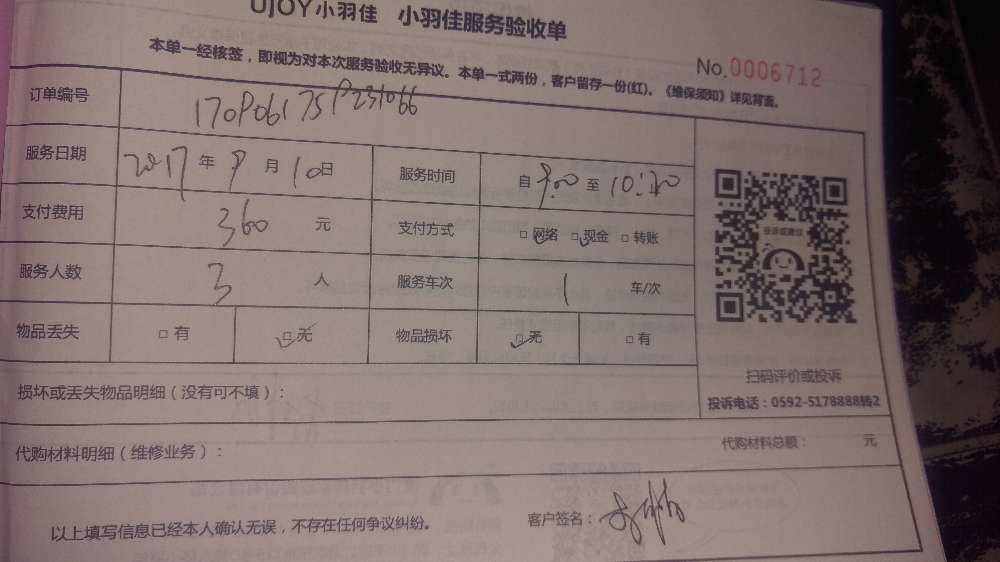 UJOY小羽佳 小羽佳服务验收单
本单一经核签，即视为对本次服务验收无异议。本单一式两份，客户留存一份(红)。《维保须知》详见背面。
No.0006712
订单编号 170906175P231066
服务日期 2017年9月10日 服务时间 自9:00至10:20
支付费用 360元 支付方式 □网络 □现金 □转账
服务人数 3人 服务车次 1车/次
物品丢失 □有 □无 物品损坏 □无 □有
投诉或建议
扫码评价或投诉
投诉电话：0592-5178888转2
损坏或丢失物品明细（没有可不填）：
代购材料明细（维修业务）： 代购材料总额： 元
以上填写信息已经本人确认无误，不存在任何争议纠纷。 客户签名：